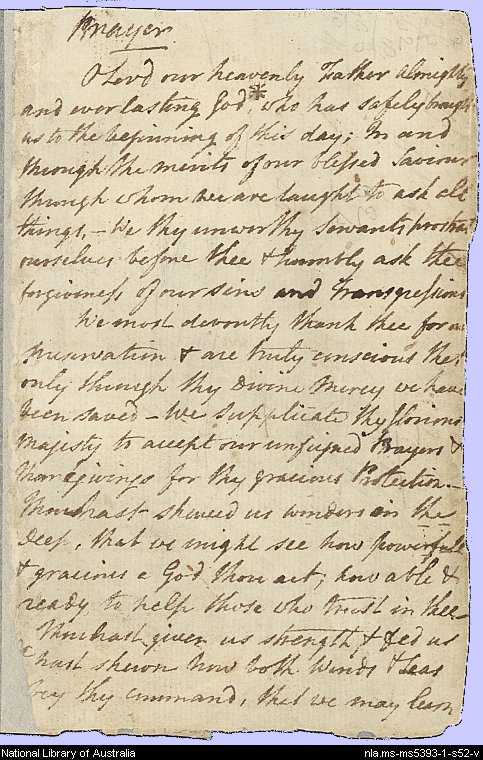 Prayer
O Lord our heavenly Father almighty
and everlasting God,* who has safely brought
us to the beginning of this day; In and
through the merits of our blessed Saviour
through whom we are taught to ask all
things. — We thy unworthy Servants prostrat
ourselves before thee & humbly ask thee
forgiveness of our sins and transgressions
We most devoutly thank thee for our
preservation & are truly conscious that
only through thy Divine Mercy we have
been saved — We supplicate thy glorious
Majesty to accept our unfeigned Prayers &
thanksgivings for thy gracious Protection. —
Thou hast shewed us wonders in the
Deep, that we might see how powerfull
& gracious a God thou art; how able &
ready to help those who trust in thee —
Thou hast given us strength & fed us
& hast shewn how both Winds & Seas
obey thy command, that we may learn
National Library of Australia
nla.ms-ms5393-1-s52-v